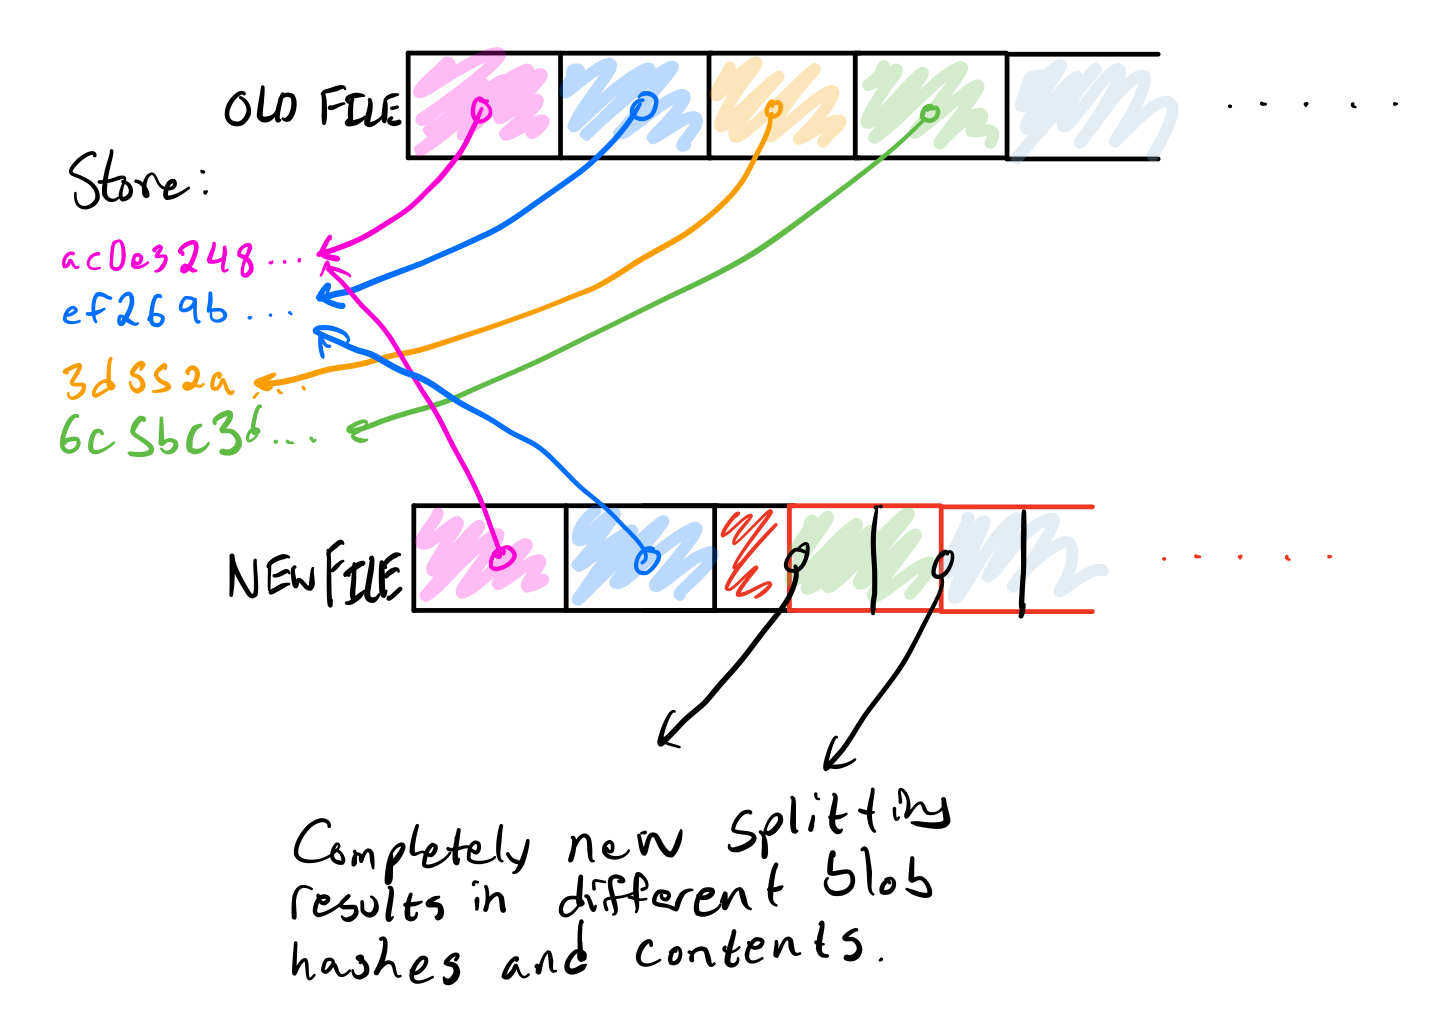 OLD FILE
Store:
ac0e3248...
ef269b...
3d552a...
6c5bc36...
NEW FILE
Completely new splitting
results in different blob
hashes and contents.